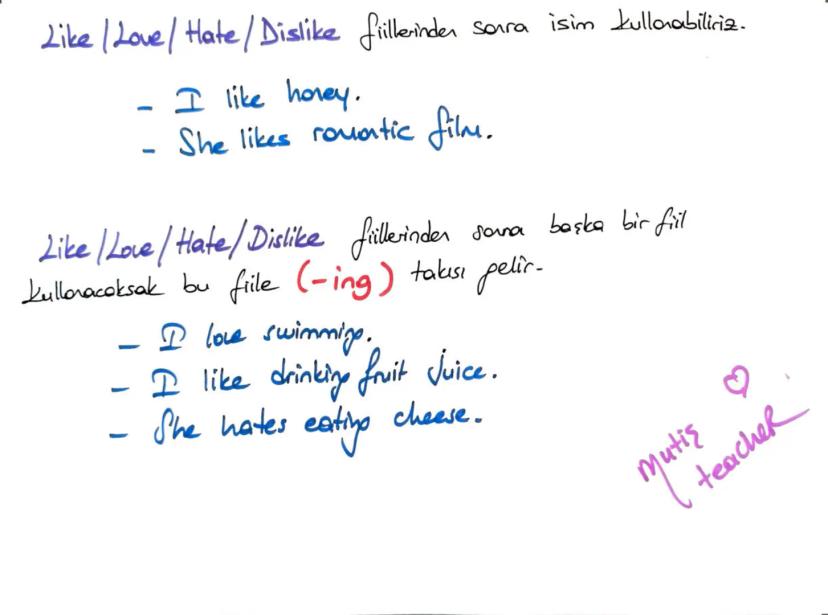 Like/Love/Hate/Dislike fiillerinden sonra isim kullanabiliriz.
- I like honey.
- She likes romantic film.
Like/Love/Hate/Dislike fiillerinden sonra başka bir fiil
kullanacaksak bu fiile (-ing) takısı gelir.
- I love swimming.
- I like drinking fruit juice.
- She hates eating cheese.
mutiş
teacher